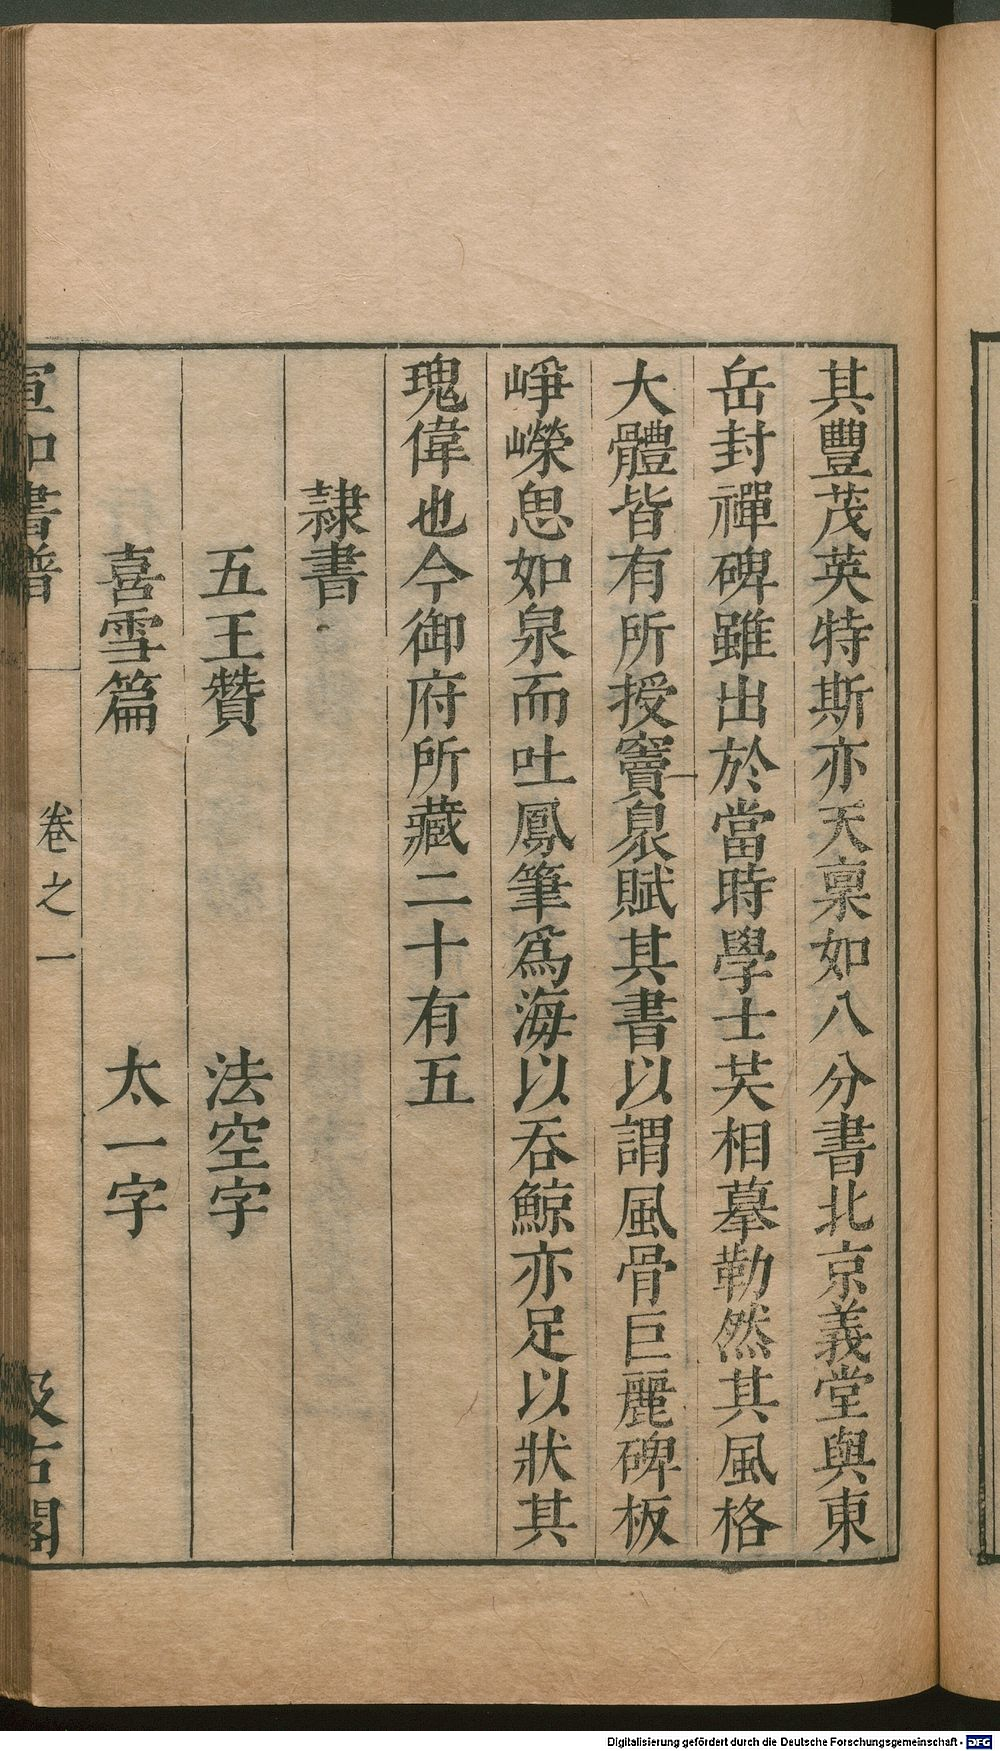 其豐茂英特斯亦天稟如八分書北京義堂與東
岳封禪碑雖出於當時學士共相摹勒然其風格
大體皆有所授竇臮賦其書以謂風骨巨麗碑板
崢嶸思如泉而吐鳳筆爲海以吞鯨亦足以狀其
瑰偉也今御府所藏二十有五
隷書
五王贊 法空字
喜雪篇 太一字
宣和書譜 卷之一 汲古閣
Digitalisierung gefördert durch die Deutsche Forschungsgemeinschaft - DFG